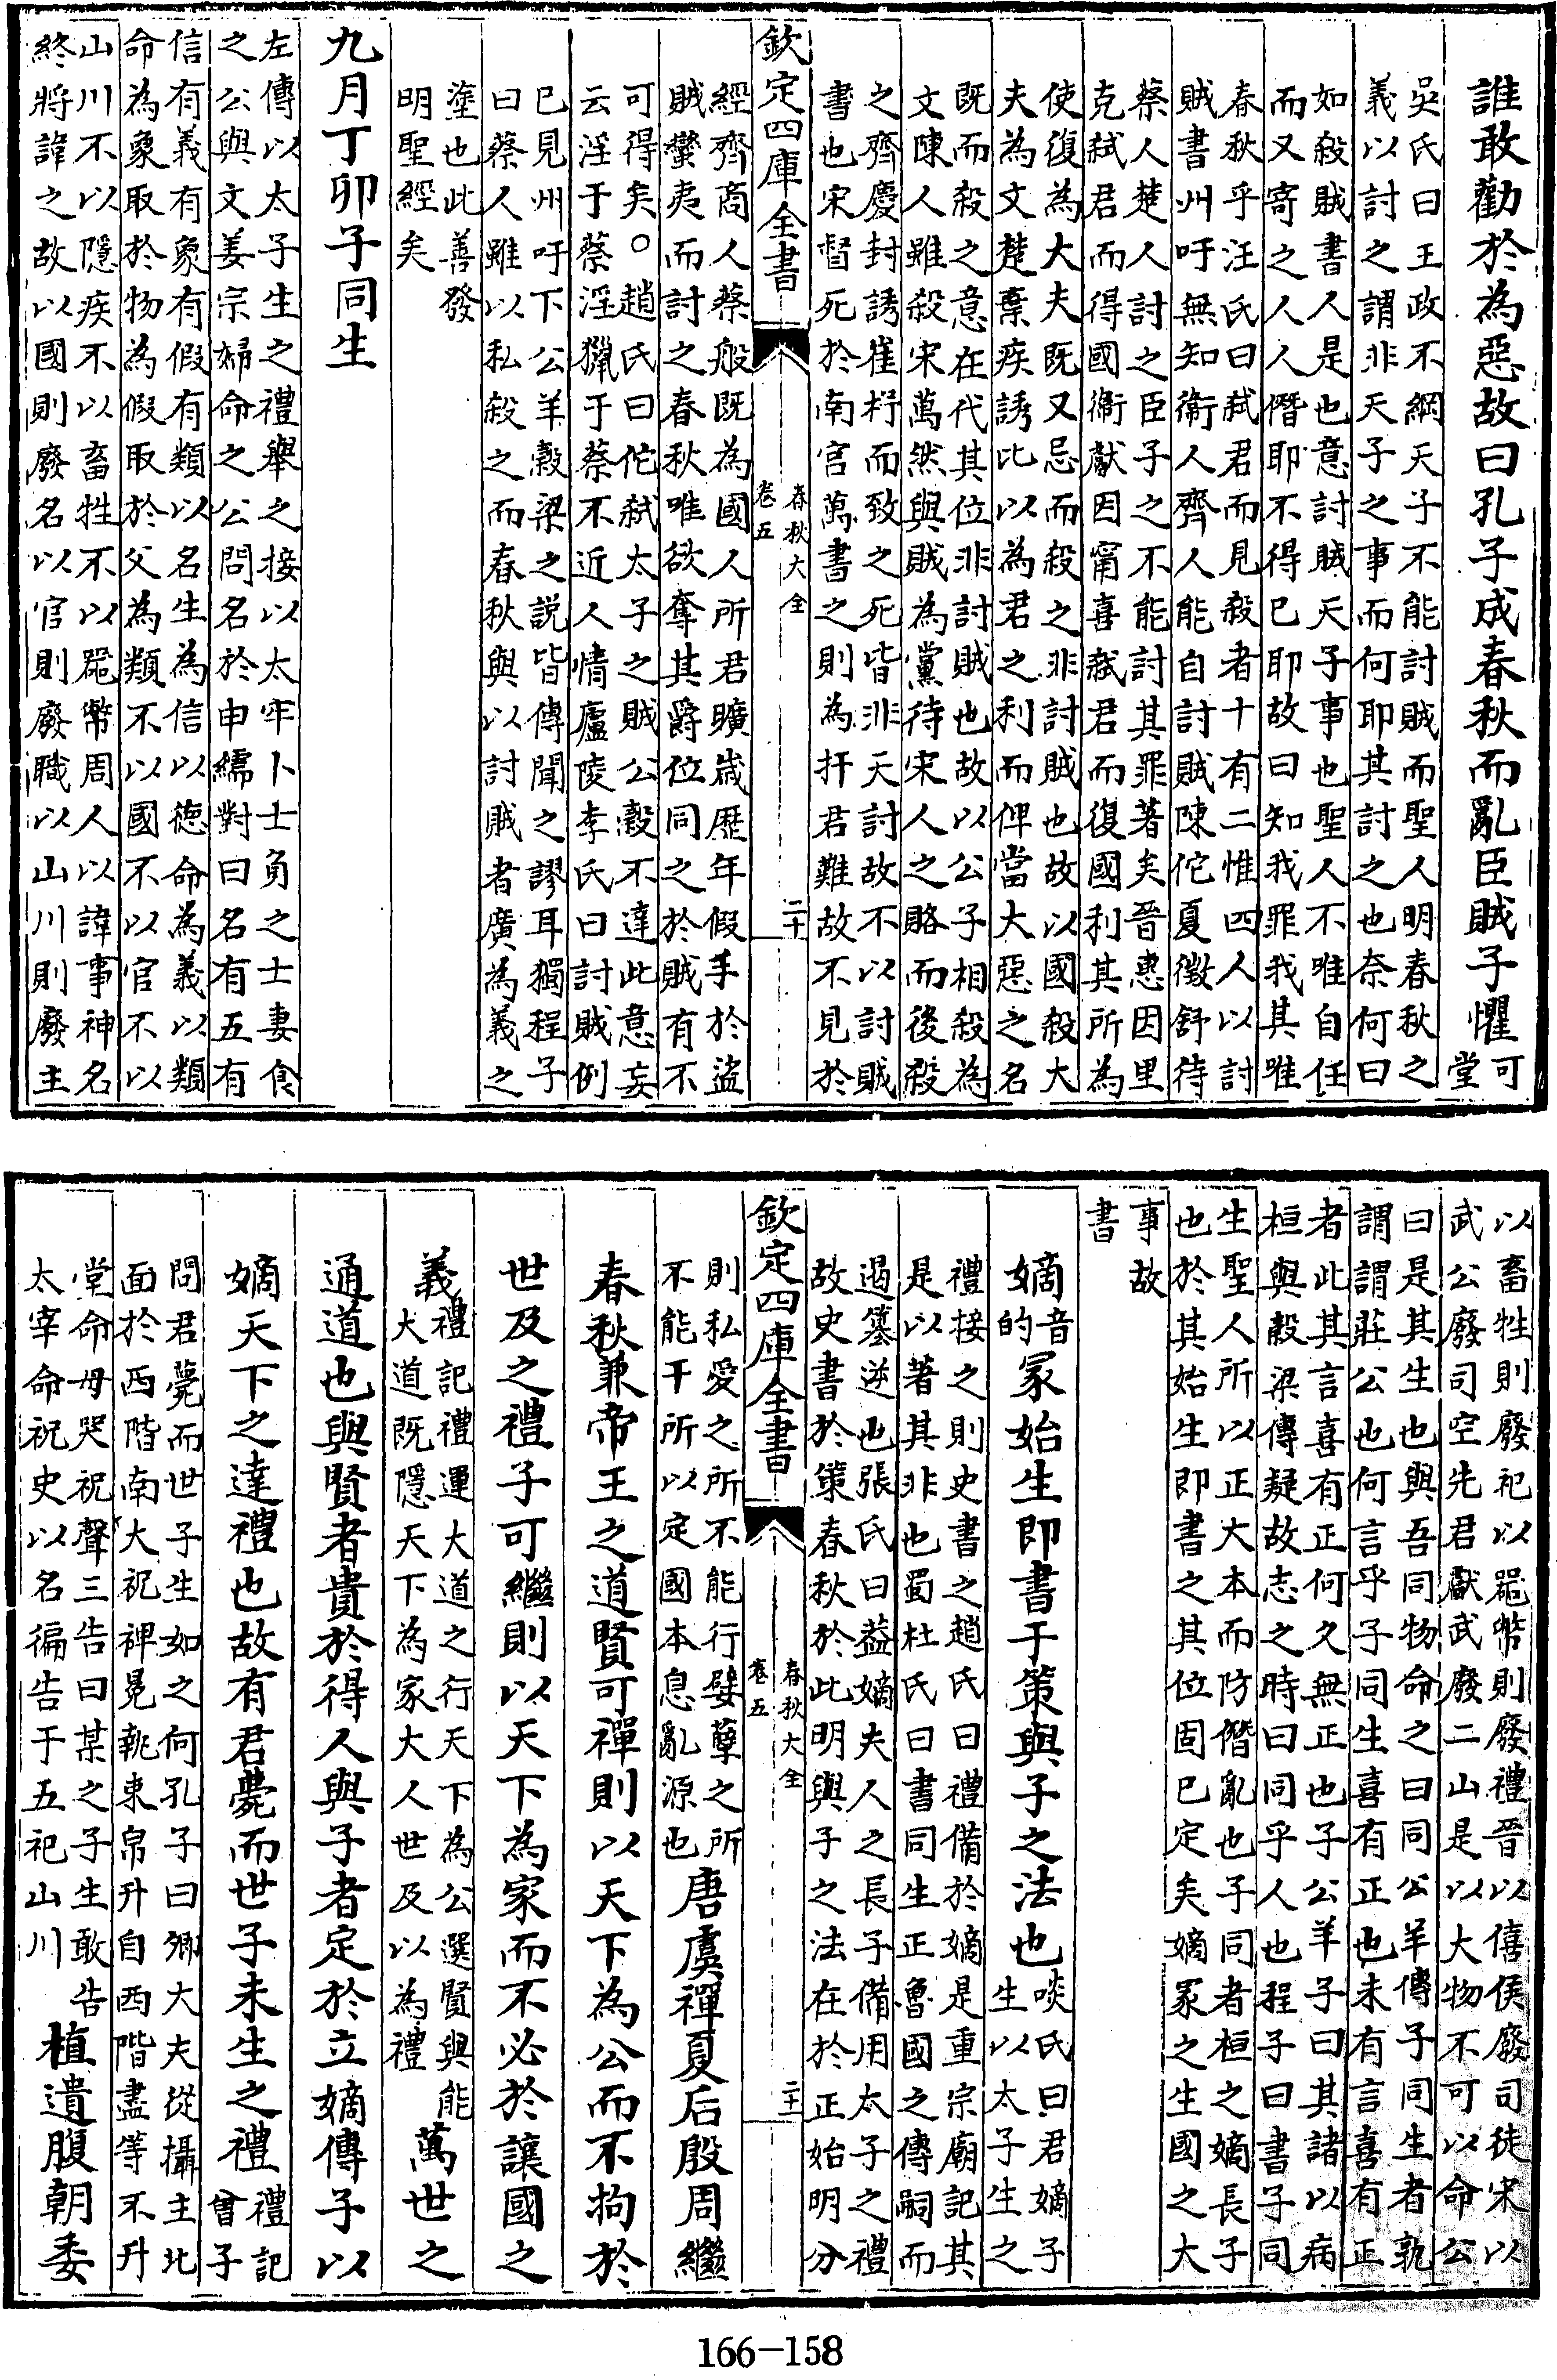 誰敢勸於為惡故曰孔子成春秋而亂臣賊子懼可
堂
吳氏曰王政不綱天子不能討賊而聖人明春秋之
義以討之謂非天子之事而何耶其討之也奈何曰
如殺賊書人是也意討賊天子事也聖人不唯自任
而又寄之人人僭耶不得已耶故曰知我罪我其唯
春秋乎汪氏曰弒君而見殺者十有二惟四人以討
賊書州吁無知衛人齊人能自討賊陳佗夏徵舒待
蔡人楚人討之臣子之不能討其罪著矣晉惠因里
克弒君而得國衛獻因甯喜弒君而復國利其所為
使復為大夫既又忌而殺之非討賊也故以國殺大
夫為文楚棄疾誘比以為君之利而俾當大惡之名
既而殺之意在代其位非討賊也故以公子相殺為
文陳人雖殺宋萬然與賊為黨待宋人之賂而後殺
之齊慶封誘崔杼而致之死皆非天討故不以討賊
書也宋督死於南宫萬書之則為扞君難故不見於
欽定四庫全書
春秋大全
卷五
二十
經齊商人蔡般既為國人所君曠歲歷年假手於盜
賊蠻夷而討之春秋唯欲奪其爵位同之於賊有不
可得矣○趙氏曰佗弒太子之賊公穀不達此意妄
云淫于蔡淫獵于蔡不近人情廬陵李氏曰討賊例
已見州吁下公羊穀梁之説皆傳聞之謬耳獨程子
曰蔡人雖以私殺之而春秋與以討賊者廣為義之
塗也此善發
明聖經矣
九月丁卯子同生
左傳以太子生之禮舉之接以太牢卜士負之士妻食
之公與文姜宗婦命之公問名於申繻對曰名有五有
信有義有象有假有類以名生為信以德命為義以類
命為象取於物為假取於父為類不以國不以官不以
山川不以隱疾不以畜牲不以器幣周人以諱事神名
終將諱之故以國則廢名以官則廢職以山川則廢主
以畜牲則廢祀以器幣則廢禮晉以僖侯廢司徒宋以
武公廢司空先君獻武廢二山是以大物不可以命公
曰是其生也與吾同物命之曰同公羊傳子同生者孰
謂謂莊公也何言乎子同生喜有正也未有言喜有正
者此其言喜有正何久無正也子公羊子曰其諸以病
桓與穀梁傳疑故志之時曰同乎人也程子曰書子同
生聖人所以正大本而防僭亂也子同者桓之嫡長子
也於其始生即書之其位固已定矣嫡冢之生國之大
事故
書
嫡音
的冢始生即書于策與子之法也啖氏曰君嫡子
生以太子生之
禮接之則史書之趙氏曰禮備於嫡是重宗廟記其
是以著其非也蜀杜氏曰書同生正魯國之傳嗣而
遏簒逆也張氏曰益嫡夫人之長子備用太子之禮
故史書於策春秋於此明與子之法在於正始明分
欽定四庫全書
春秋大全
卷五
二十
則私愛之所不能行嬖孽之所
不能干所以定國本息亂源也唐虞禪夏后殷周繼
春秋兼帝王之道賢可禪則以天下為公而不拘於
世及之禮子可繼則以天下為家而不必於讓國之
義禮記禮運大道之行天下為公選賢與能
大道既隱天下為家大人世及以為禮萬世之
通道也與賢者貴於得人與子者定於立嫡傳子以
嫡天下之達禮也故有君薨而世子未生之禮禮記
曾子
問君薨而世子生如之何孔子曰卿大夫從攝主北
面於西階南大祝裨冕執束帛升自西階盡等不升
堂命毋哭祝聲三告曰某之子生敢告
太宰命祝史以名徧告于五祀山川植遺腹朝委
166-158